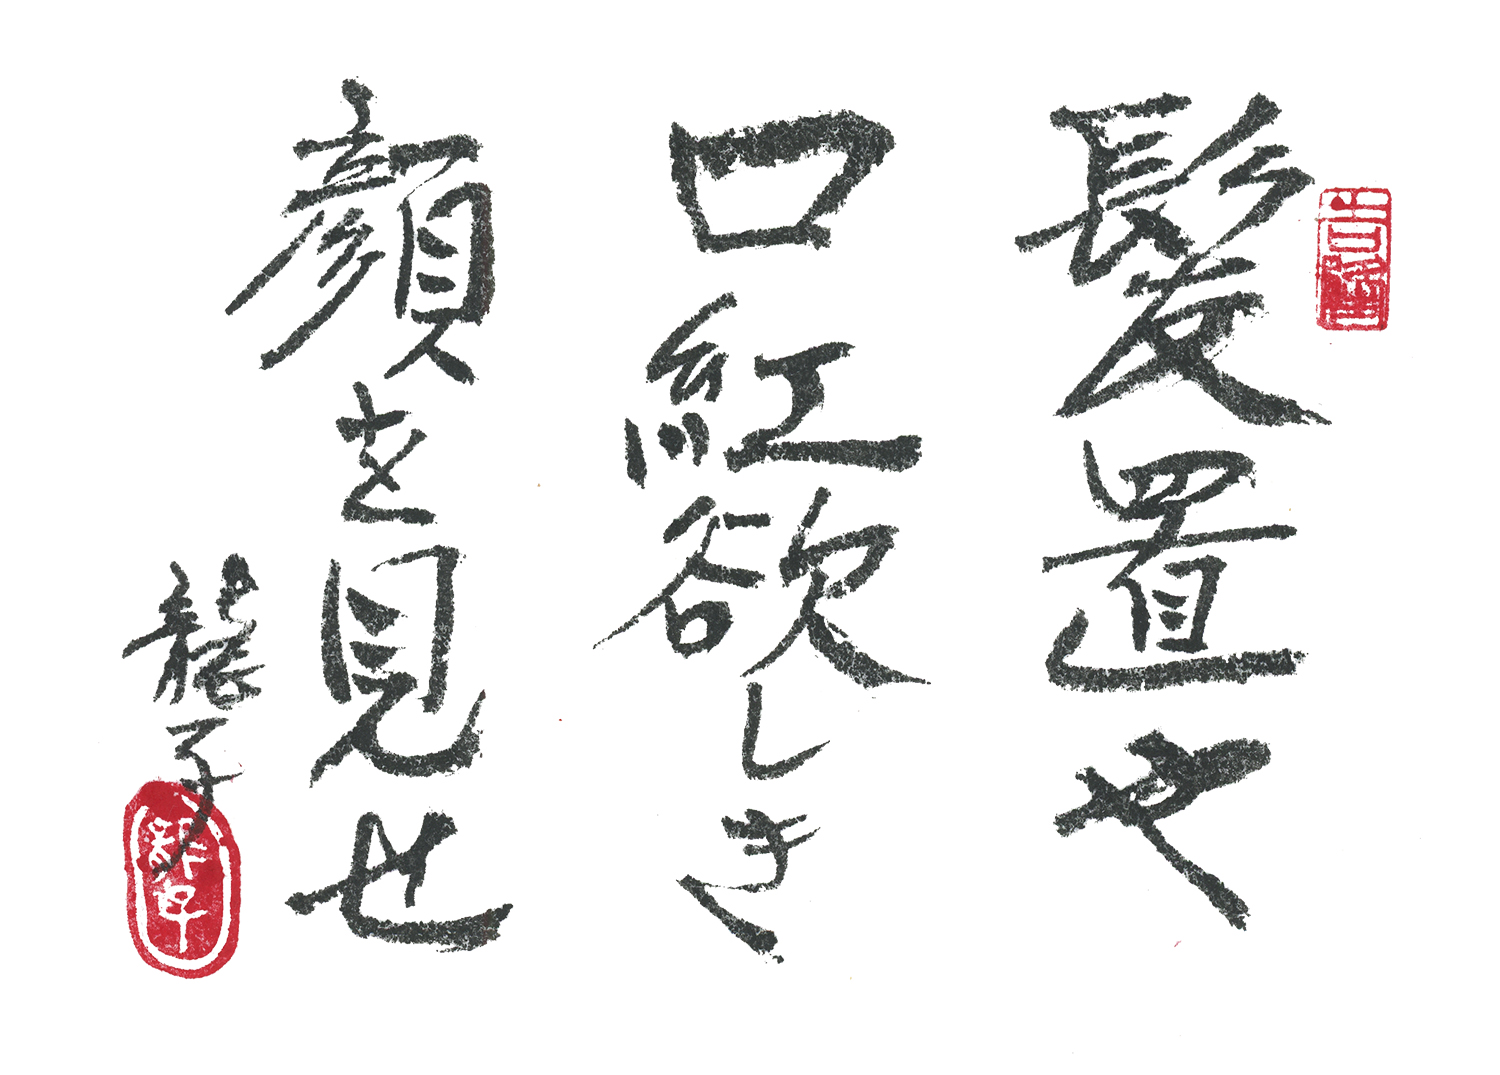 髪置や
口紅欲しき
顔を見せ
龍子